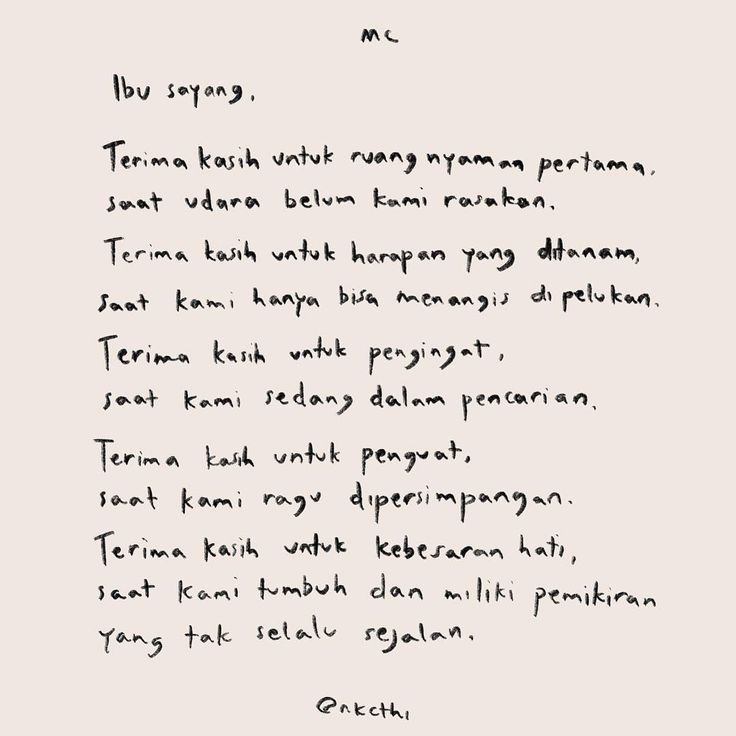 MC
Ibu sayang,
Terima kasih untuk ruang nyaman pertama,
saat udara belum kami rasakan.
Terima kasih untuk harapan yang ditanam,
saat kami hanya bisa menangis di pelukan.
Terima kasih untuk pengingat,
saat kami sedang dalam pencarian.
Terima kasih untuk penguat,
saat kami ragu dipersimpangan.
Terima kasih untuk kebesaran hati,
saat kami tumbuh dan miliki pemikiran
yang tak selalu sejalan.
@nkcthi